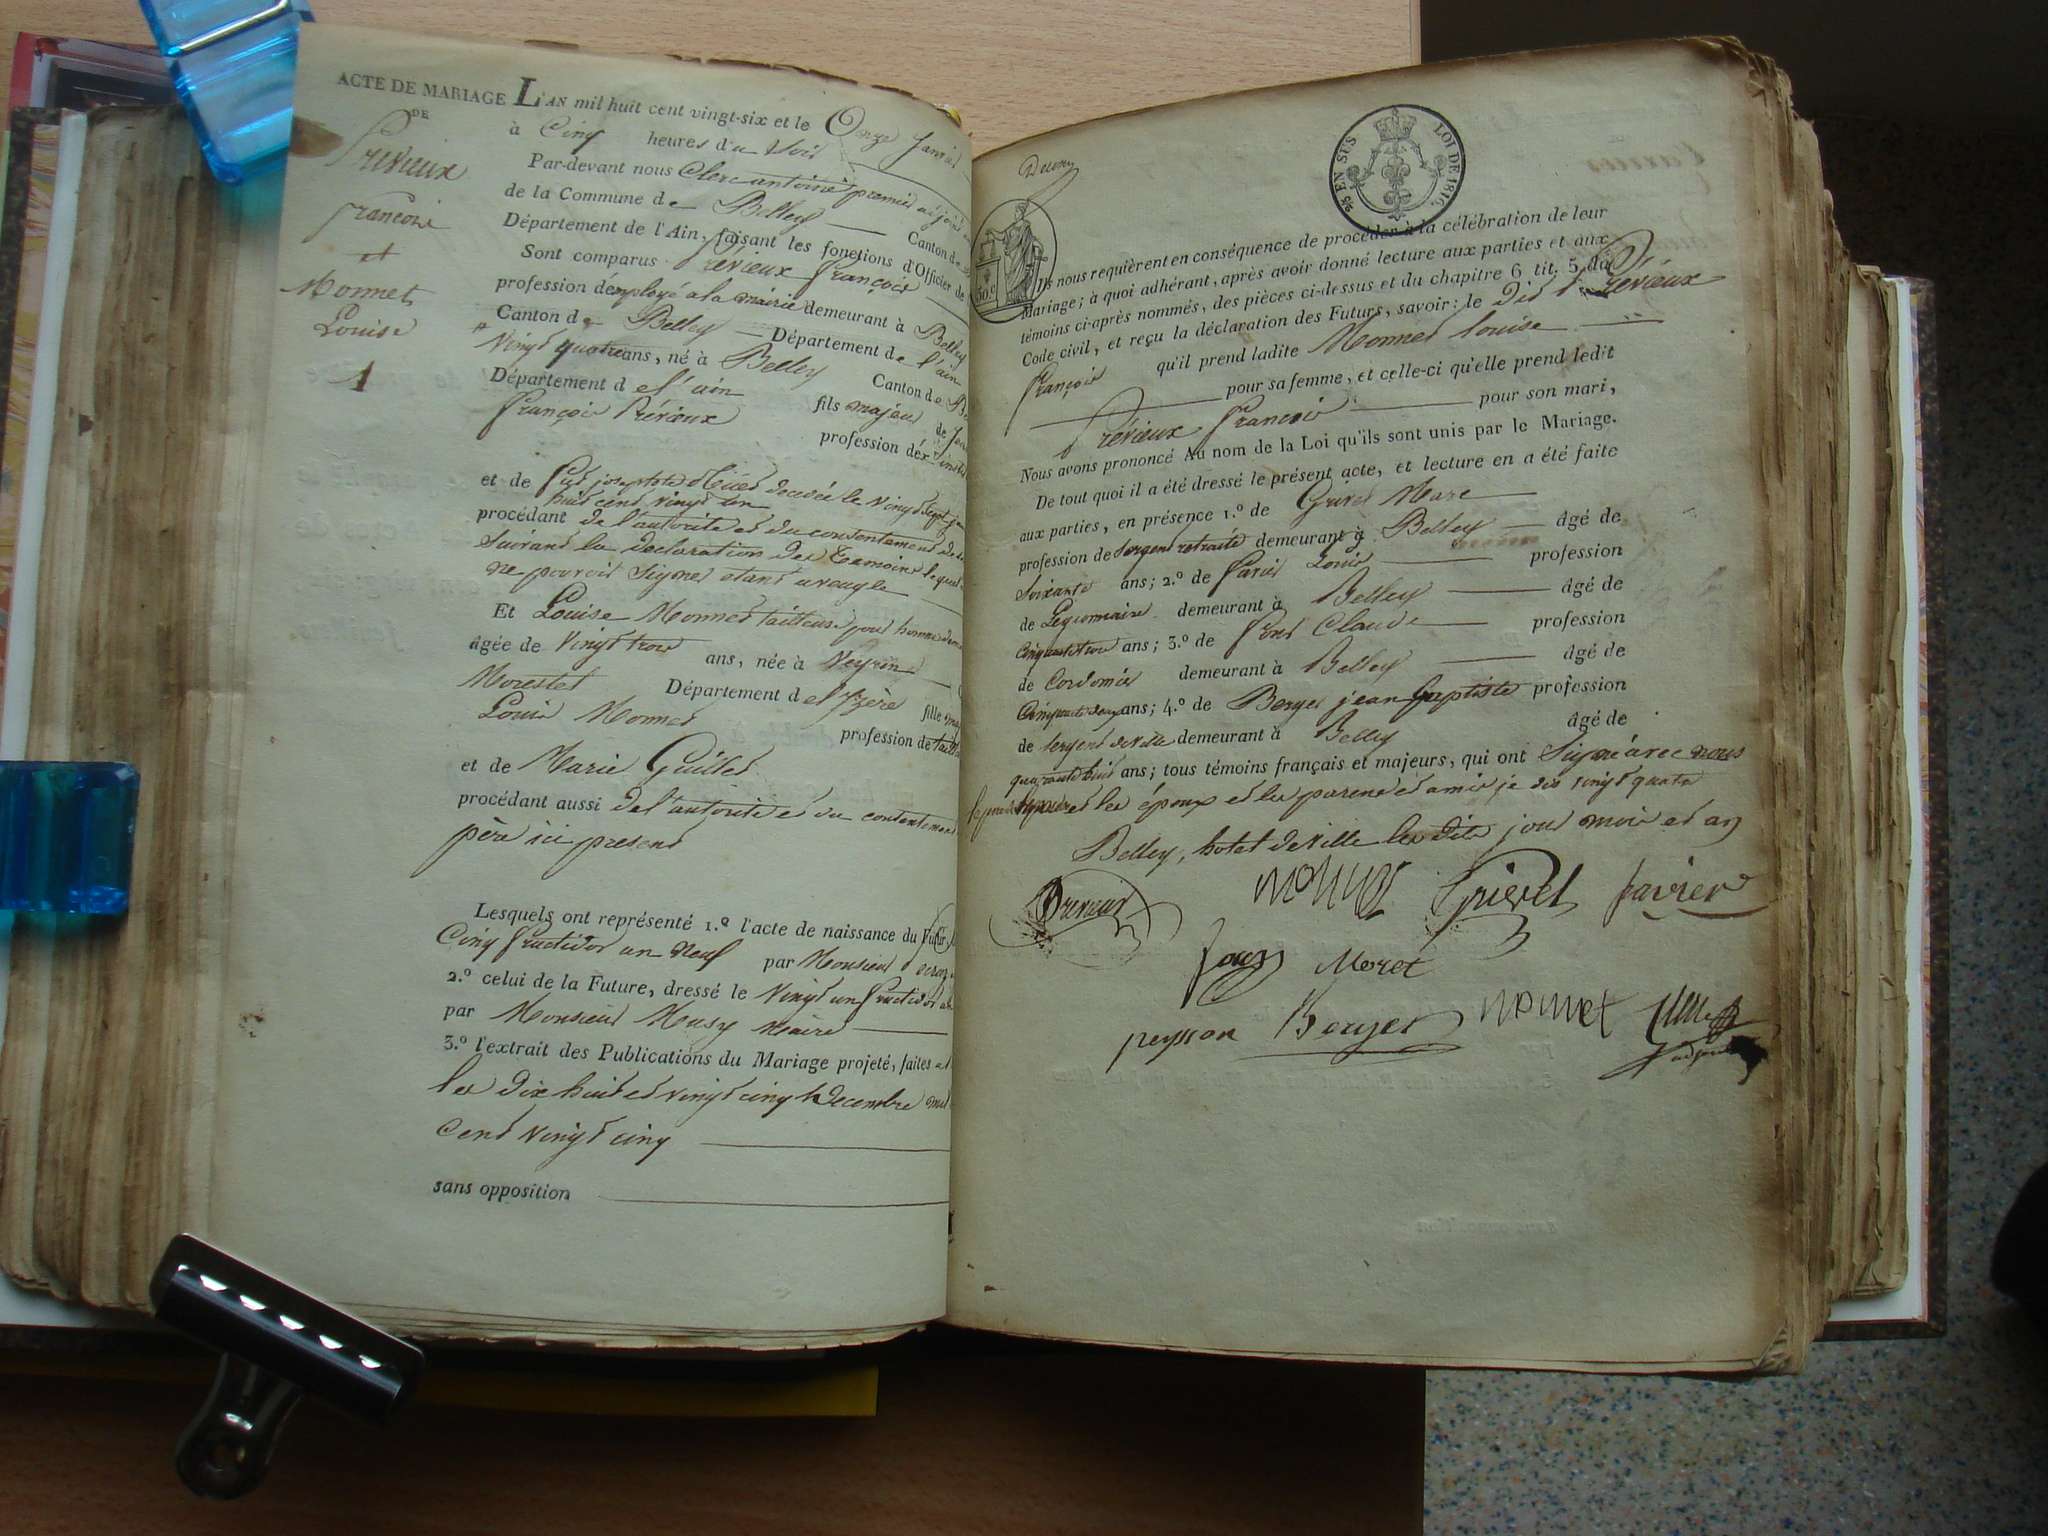 ACTE DE MARIAGE
DE
Prévieux
François
et
Monnet
Louise
1
L'AN mil huit cent vingt-six et le Onze Janvier
à Cinq heures du Soir
Par-devant nous Clerc antoine premier adjoint
de la Commune de Belley Canton de
Département de l'Ain, faisant les fonctions d'Officier de
Sont comparus Prévieux François
profession d'employé a la mairie demeurant à Belley
Canton de Belley Département de l'ain
Vingt quatre ans, né à Belley Canton de Be
Département de l'ain fils majeur de
François Prévieux profession d'ex
et de decedée le Vingt Sept
huit cent vingt un
procédant de l'autorité et du consentement de
Suivant la declaration des Temoins lequel
ne pouvoit Signer etant aveugle
Et Louise Monnet tailleuse pour homme
âgée de Vingt trois ans, née à Veyrin
Morestel Département de l'Izère fille
Louis Monnet profession de taill
et de Marie Guillet
procédant aussi de l'autorité et du contentement
père ici present
Lesquels ont représenté 1.º l'acte de naissance du Futur,
Cinq fructidor an Neuf par Monsieur
2.º celui de la Future, dressé le Vingt un fructidor
par Monsieur Musy Maire
3.º l'extrait des Publications du Mariage projeté, faites
les Dix huit et vingt cinq Decembre mil
Cent vingt cinq
sans opposition
25 EN SUS LOI DE 1816.
50 c
Ils nous requièrent en conséquence de procéder à la célébration de leur
Mariage; à quoi adhérant, après avoir donné lecture aux parties et aux
témoins ci-après nommés, des pièces ci-dessus et du chapitre 6 tit. 5 du
Code civil, et reçu la déclaration des Futurs, savoir: le Dit Prévieux
François qu'il prend ladite Monnet Louise
pour sa femme, et celle-ci qu'elle prend ledit
Prévieux François pour son mari,
Nous avons prononcé Au nom de la Loi qu'ils sont unis par le Mariage.
De tout quoi il a été dressé le présent acte, et lecture en a été faite
aux parties, en présence 1.º de Grivet Marc
profession de Sergent retraité demeurant à Belley âgé de
Soixante ans; 2.º de Favier Louis profession
de Legionnaire demeurant à Belley âgé de
Cinquante trois ans; 3.º de Claude profession
de Cordonnier demeurant à Belley âgé de
Cinquante deux ans; 4.º de Berger jean baptiste profession
de Sergent de Ville demeurant à Belley âgé de
quarante huit ans; tous témoins français et majeurs, qui ont Signé avec nous
et les époux et les parens et amis je dis vingt quatre
Belley, hotel de Ville les dits jour mois et an
Previeux monnet Grivet favier
Moret
peysson Berger monnet
adjoint